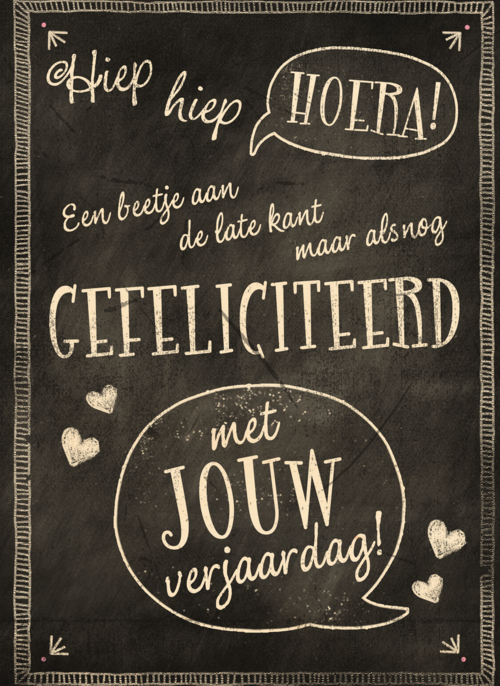 Hiep
hiep
HOERA!
Een beetje aan
de late kant
maar alsnog
GEFELICITEERD
met
JOUW
verjaardag!